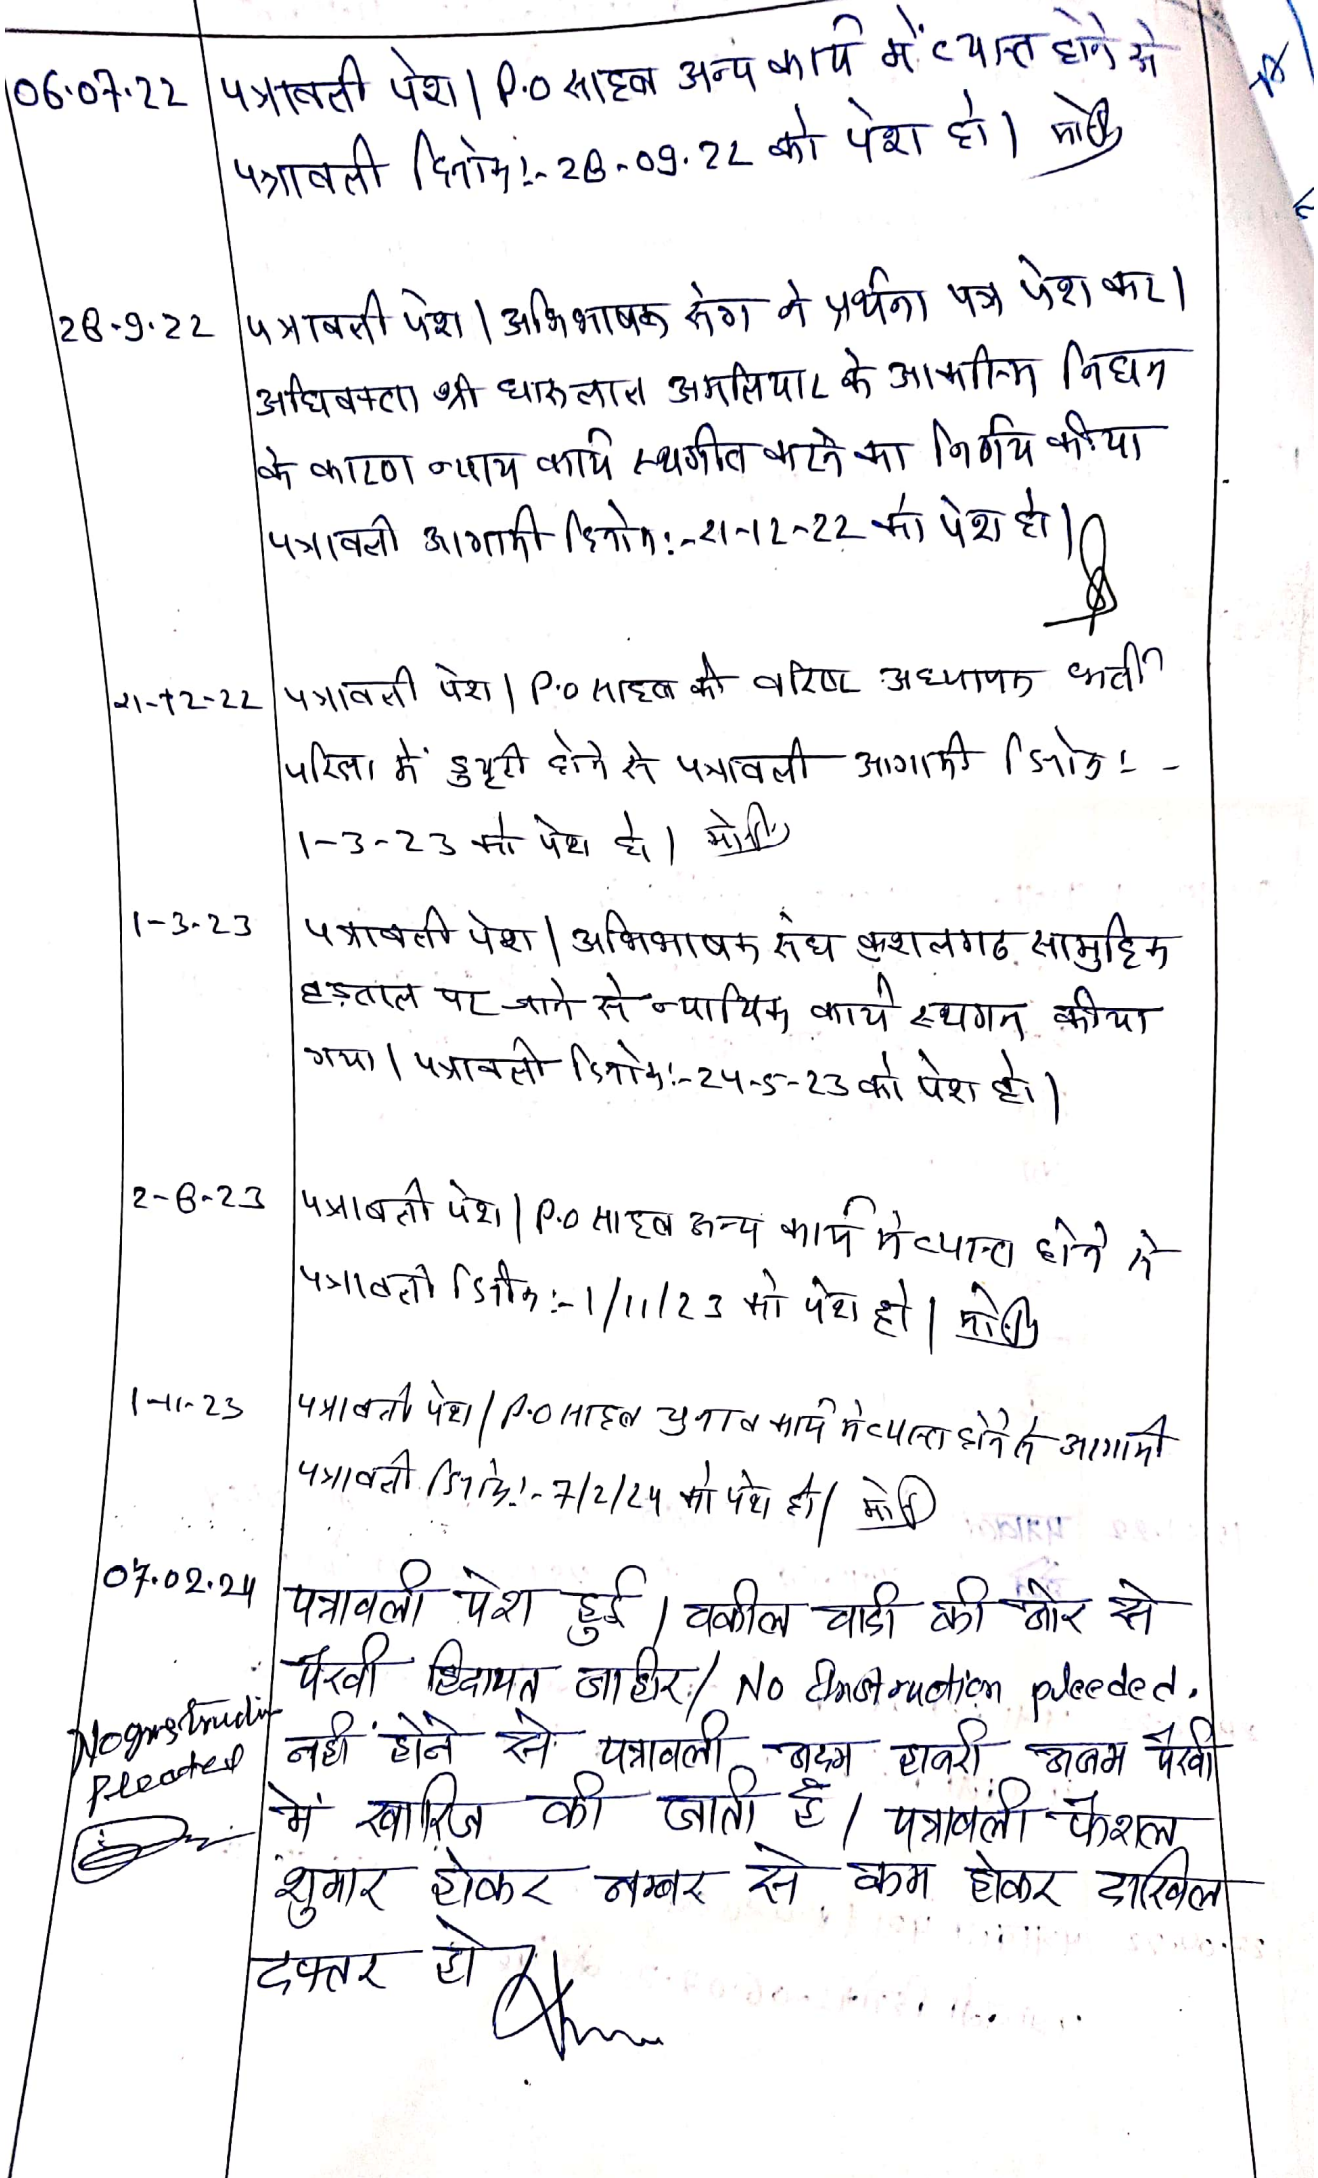 06.07.22 पत्रावली पेश। P.O साहब अन्य कार्य में व्यस्त होने से
पत्रावली दिनांक:- 28-09.22 को पेश हो।
28-9-22 पत्रावली पेश। अभिभाषक संग ने प्रर्थना पत्र पेश कर।
अधिवक्ता श्री अमलियार के आकस्मिक निधन
के कारण न्याय कार्य स्थगीत करने का निर्णय कीया
पत्रावली आगामी दिनांक:-21-12-22 को पेश हो।
21-12-22 पत्रावली पेश। P.O साहब की वरिष्ट अध्यापक भर्ती
परिक्षा में ड्युटी होने से पत्रावली आगामी दिनांक:-
1-3-23 को पेश हो।
1-3-23 पत्रावली पेश। अभिभाषक संघ कुशलगढ सामुहिक
हड़ताल पर जाने से न्यायिक कार्य स्थगन कीया
गया। पत्रावली दिनांक:-24-5-23 को पेश हो।
2-8-23 पत्रावली पेश। P.O साहब अन्य कार्य में व्यस्त होने से
पत्रावली दिनांक:-1/11/23 को पेश हो।
1-11-23 पत्रावली पेश। P.O साहब चुनाव कार्य में व्यस्त होने से आगामी
पत्रावली दिनांक:-7/2/24 को पेश हो।
07.02.24 पत्रावली पेश हुई। वकील वादी की ओर से
पैरवी हिदायत जाहीर। No Instruction pleeded.
No Instruction
pleaded
नहीं होने से पत्रावली अदम हाजरी अजम पैरवी
में खारिज की जाती है। पत्रावली फैशल
शुमार होकर नम्बर से कम होकर दाखिल
दफ्तर हो